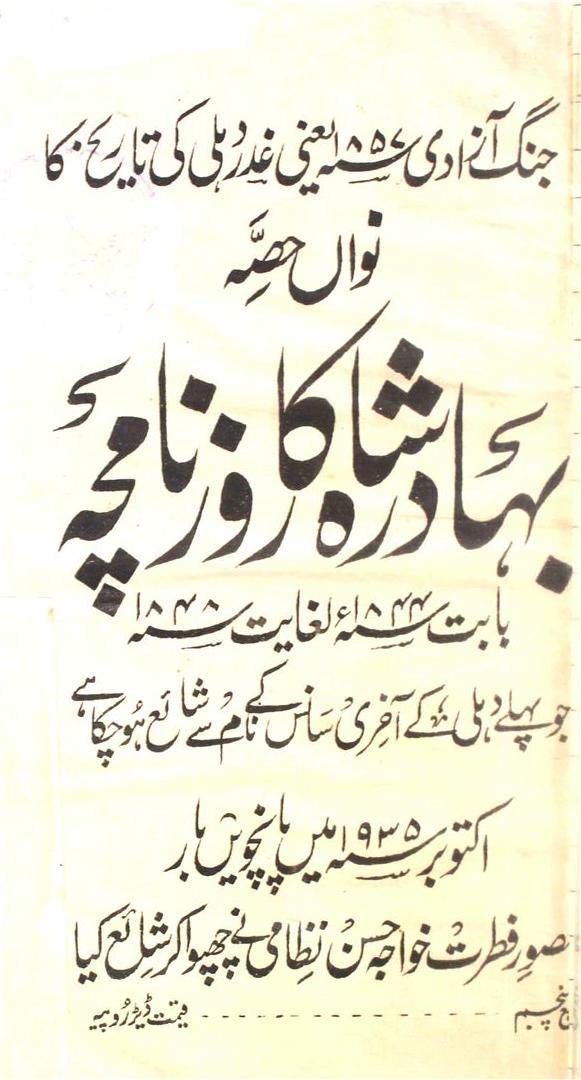 جنگ آزادی سنہ ۱۸۵۷ یعنی غدر دہلی کی تاریخ کا
نواں حصّہ
بہادر شاہ کا روزنامچہ
بابت سنہ ۱۸۴۴ء لغایت سنہ ۱۸۴۸
جو پہلے دہلی کے آخری سانس کے نام سے شائع ہو چکا ہے
اکتوبر سنہ ۱۹۳۵ میں پانچویں بار
مصورِ فطرت خواجہ حسن نظامی نے چھپوا کر شائع کیا
پنجم - - - - - - - - - - - - - - - قیمت ڈیڑ روپیہ